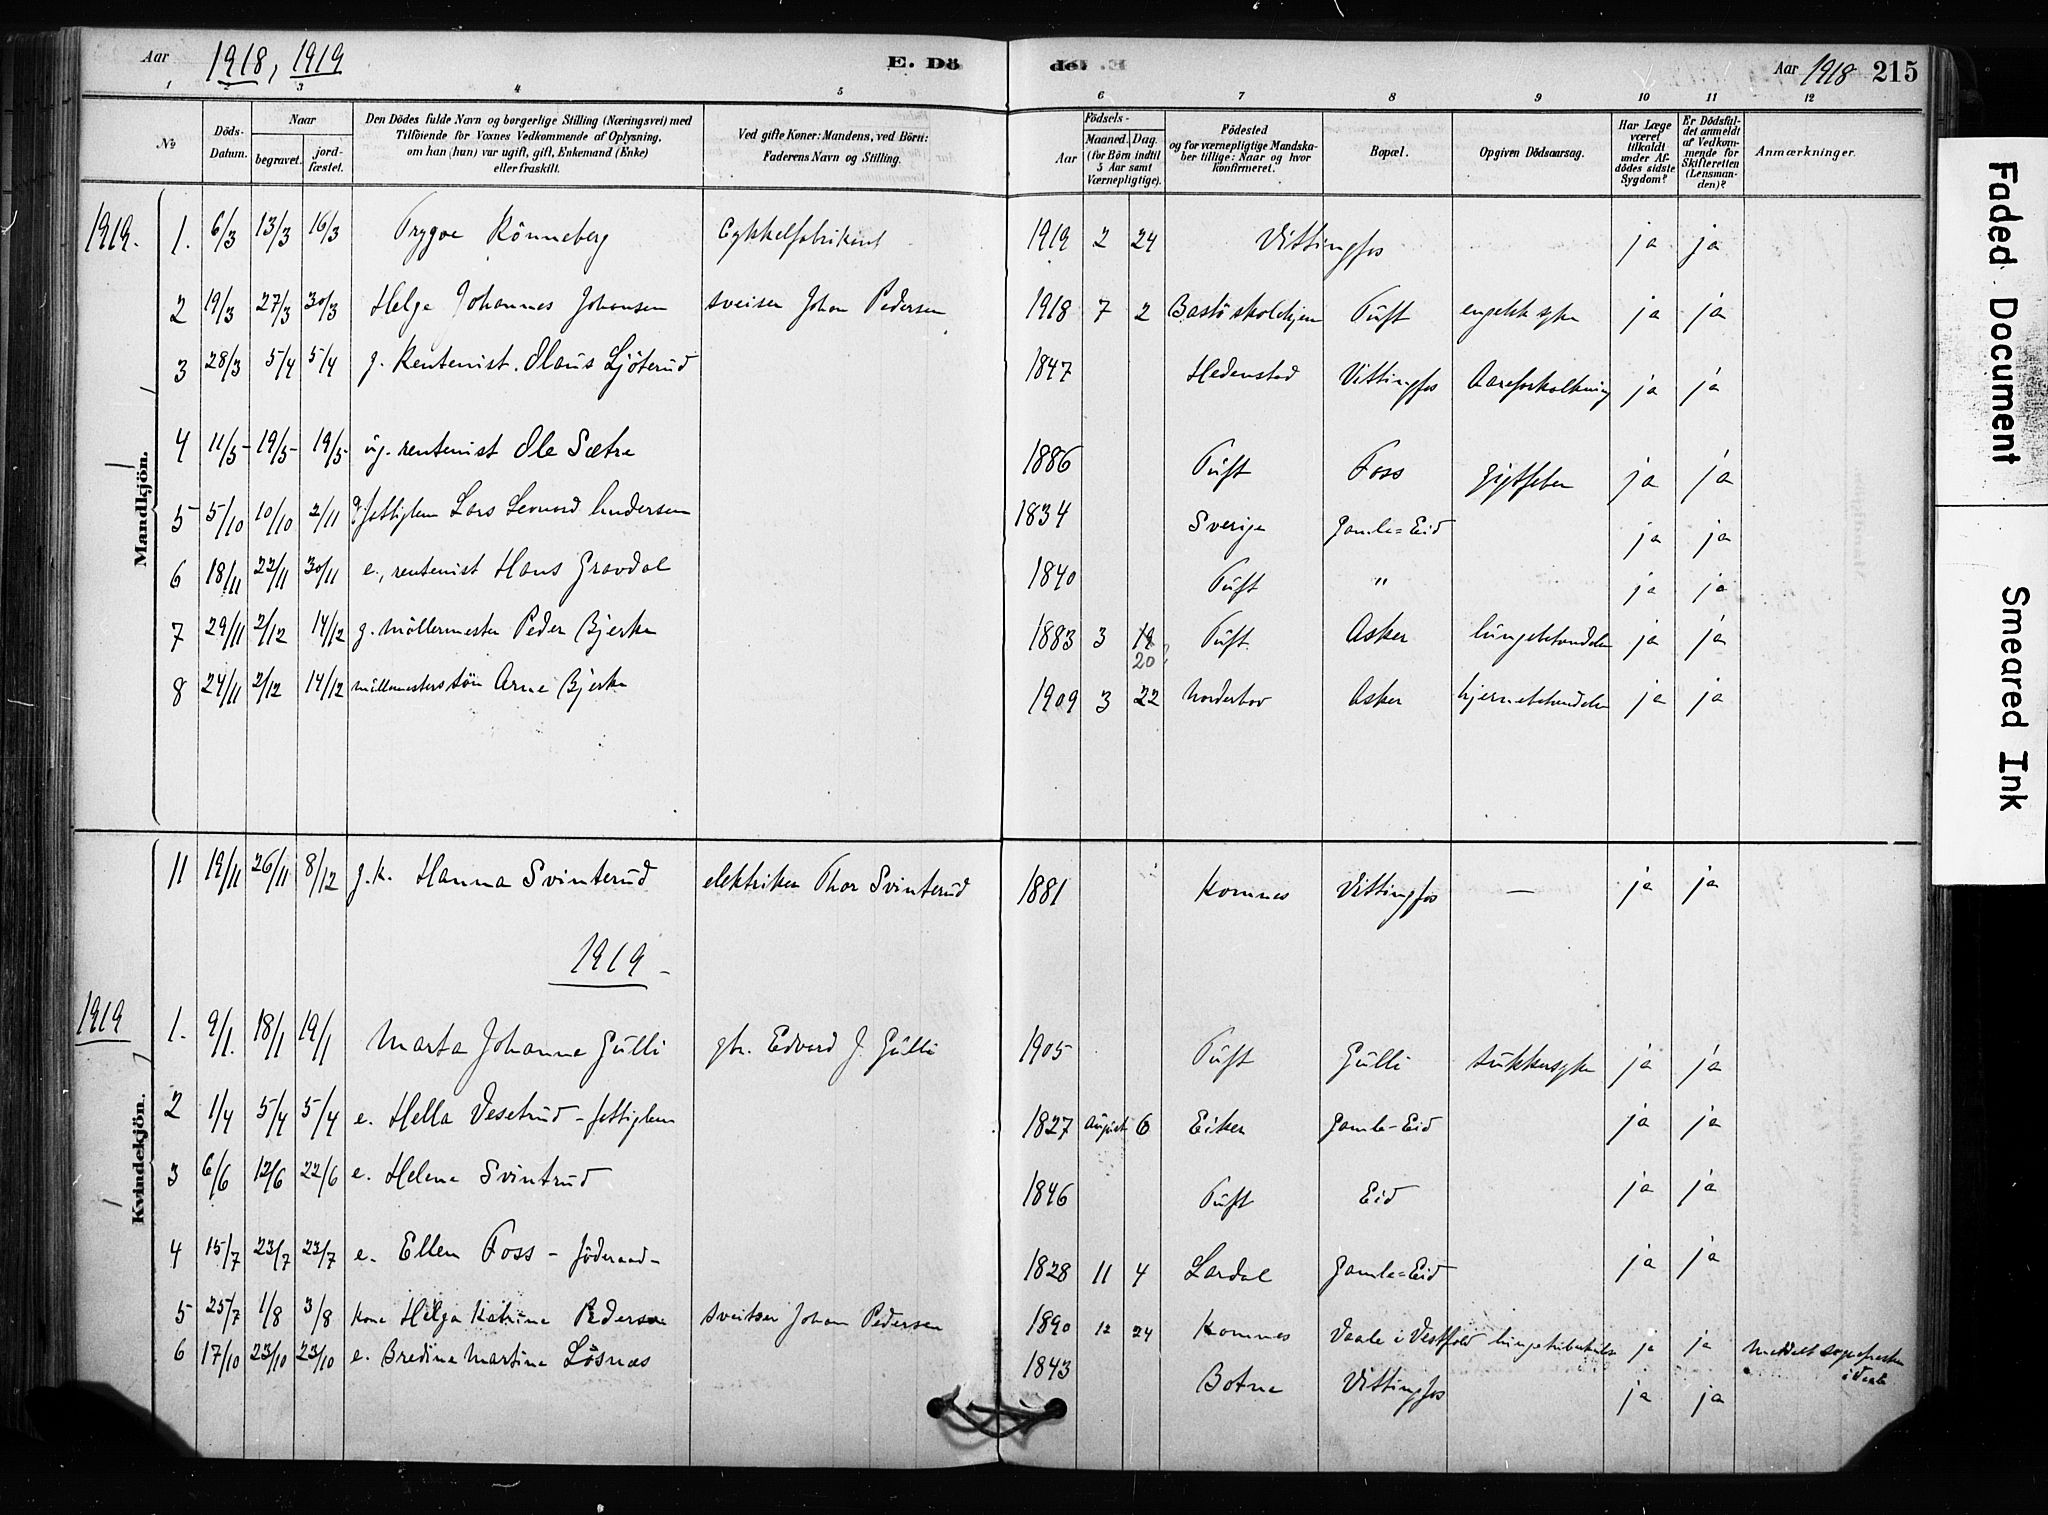 Aar 1918, 1919 E. Dö
de. Aar 1918 215
1 2 3 4 5 6 7 8 9 10 11 12
№ Döds-Datum. Naar begravet. jord-fæstet.
Den Dödes fulde Navn og borgerlige Stilling (Næringsvei) med
Tilföiende for Voxnes Vedkommende af Oplysning,
om han (hun) var ugift, gift, Enkemand (Enke)
eller fraskilt.
Ved gifte Koner: Mandens, ved Börn:
Faderens Navn og Stilling.
Födsels-
Aar Maaned. Dag.
(for Börn indtil
5 Aar samt
Værnepligtige).
Födested
og for værnepligtige Mandska-
ber tillige: Naar og hvor
konfirmeret.
Bopæl.
Opgiven Dödsaarsag.
Har Læge
været
tilkaldt
under Af-
dödes sidste
Sygdom?
Er Dödsfal-
det anmeldt
af Vedkom-
mende for
Skifteretten
(Lensman-
den)?
Anmærkninger.
Mandkjön.
1919. 1. 6/3 13/3 16/3 Trygve Rönneberg Cykkelfabrikent 1919 2 24 Vittingfos ja ja
2 19/3 27/3 30/3 Helge Johannes Johansen sveiser Johan Pedersen 1918 7 2 Tuft ja ja
3 28/3 5/4 5/4 g. Rentenist. Olaus Ljöterud 1847 Hedenstad Vittingfos Aareforkalkning ja ja
4 11/5 19/5 19/5 ug. rentenist Ole Sætre 1886 Tuft Foss gigtfeber ja ja
5 5/10 10/10 2/11 Lars Leonard Andersen 1834 Sverige Gamle=Eid ja ja
6 18/11 22/11 30/11 e., rentenist Hans Gravdal 1840 Tuft " ja ja
7 29/11 2/12 14/12 g. möllermester Peder Bjerke 1883 3 19 20? Tuft Asker ja ja
8 24/11 2/12 14/12 möllemesters sön Arne Bjerke 1909 3 22 Asker ja ja
Kvindekjön.
11 19/11 26/11 8/12 g.k. Hanna Svinterud elektriker Thor Svinterud 1881 Komnes Vittingfos — ja ja
1919
1919 1. 9/1. 18/1 19/1 Marta Johanne Gulli gbr. Edvard J. Gulli 1905 Tuft Gulli sukkersyke ja ja
2 1/4 5/4 5/4 e. Hella Vesetrud - fattiglem 1827 August 6 Eiker Gamle-Eid ja ja
3 6/6 12/6 22/6 e. Helene Svintrud 1846 Tuft Eid ja ja
4 15/7 23/7 23/7 e. Ellen Foss - föderaad- 1828 11 4 Lardal Gamle=Eid ja ja
5 25/7 1/8 3/8 kone Helga Katrine Pedersen sveitser Johan Pedersen 1890 12 24 Komnes Vaale i Vestfold ja ja Meddelt sognepresten
i Vaale
6 17/10 23/10 23/10 e. Bredine Martine Lösnæs 1843 Botne Vittingfos ja ja
Faded Document
Smeared Ink